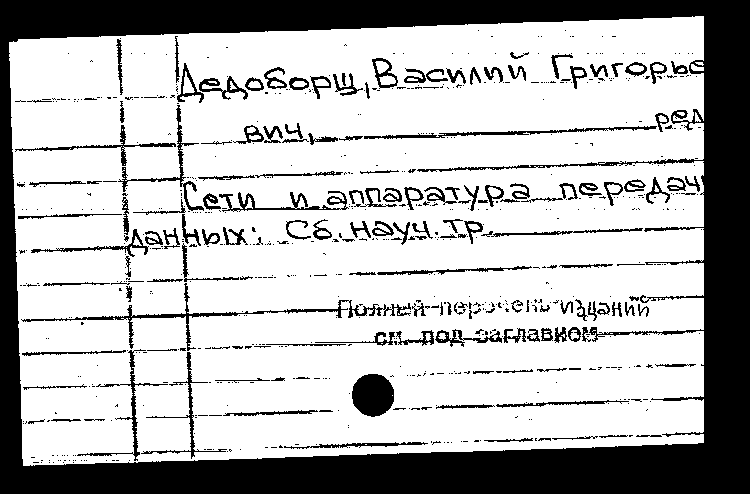 Дедоборщ, Василий Григорье
вич, ред
Сети и аппаратура передачи
данных: Сб. науч. тр.
Полный перечень изданий
см. под заглавием